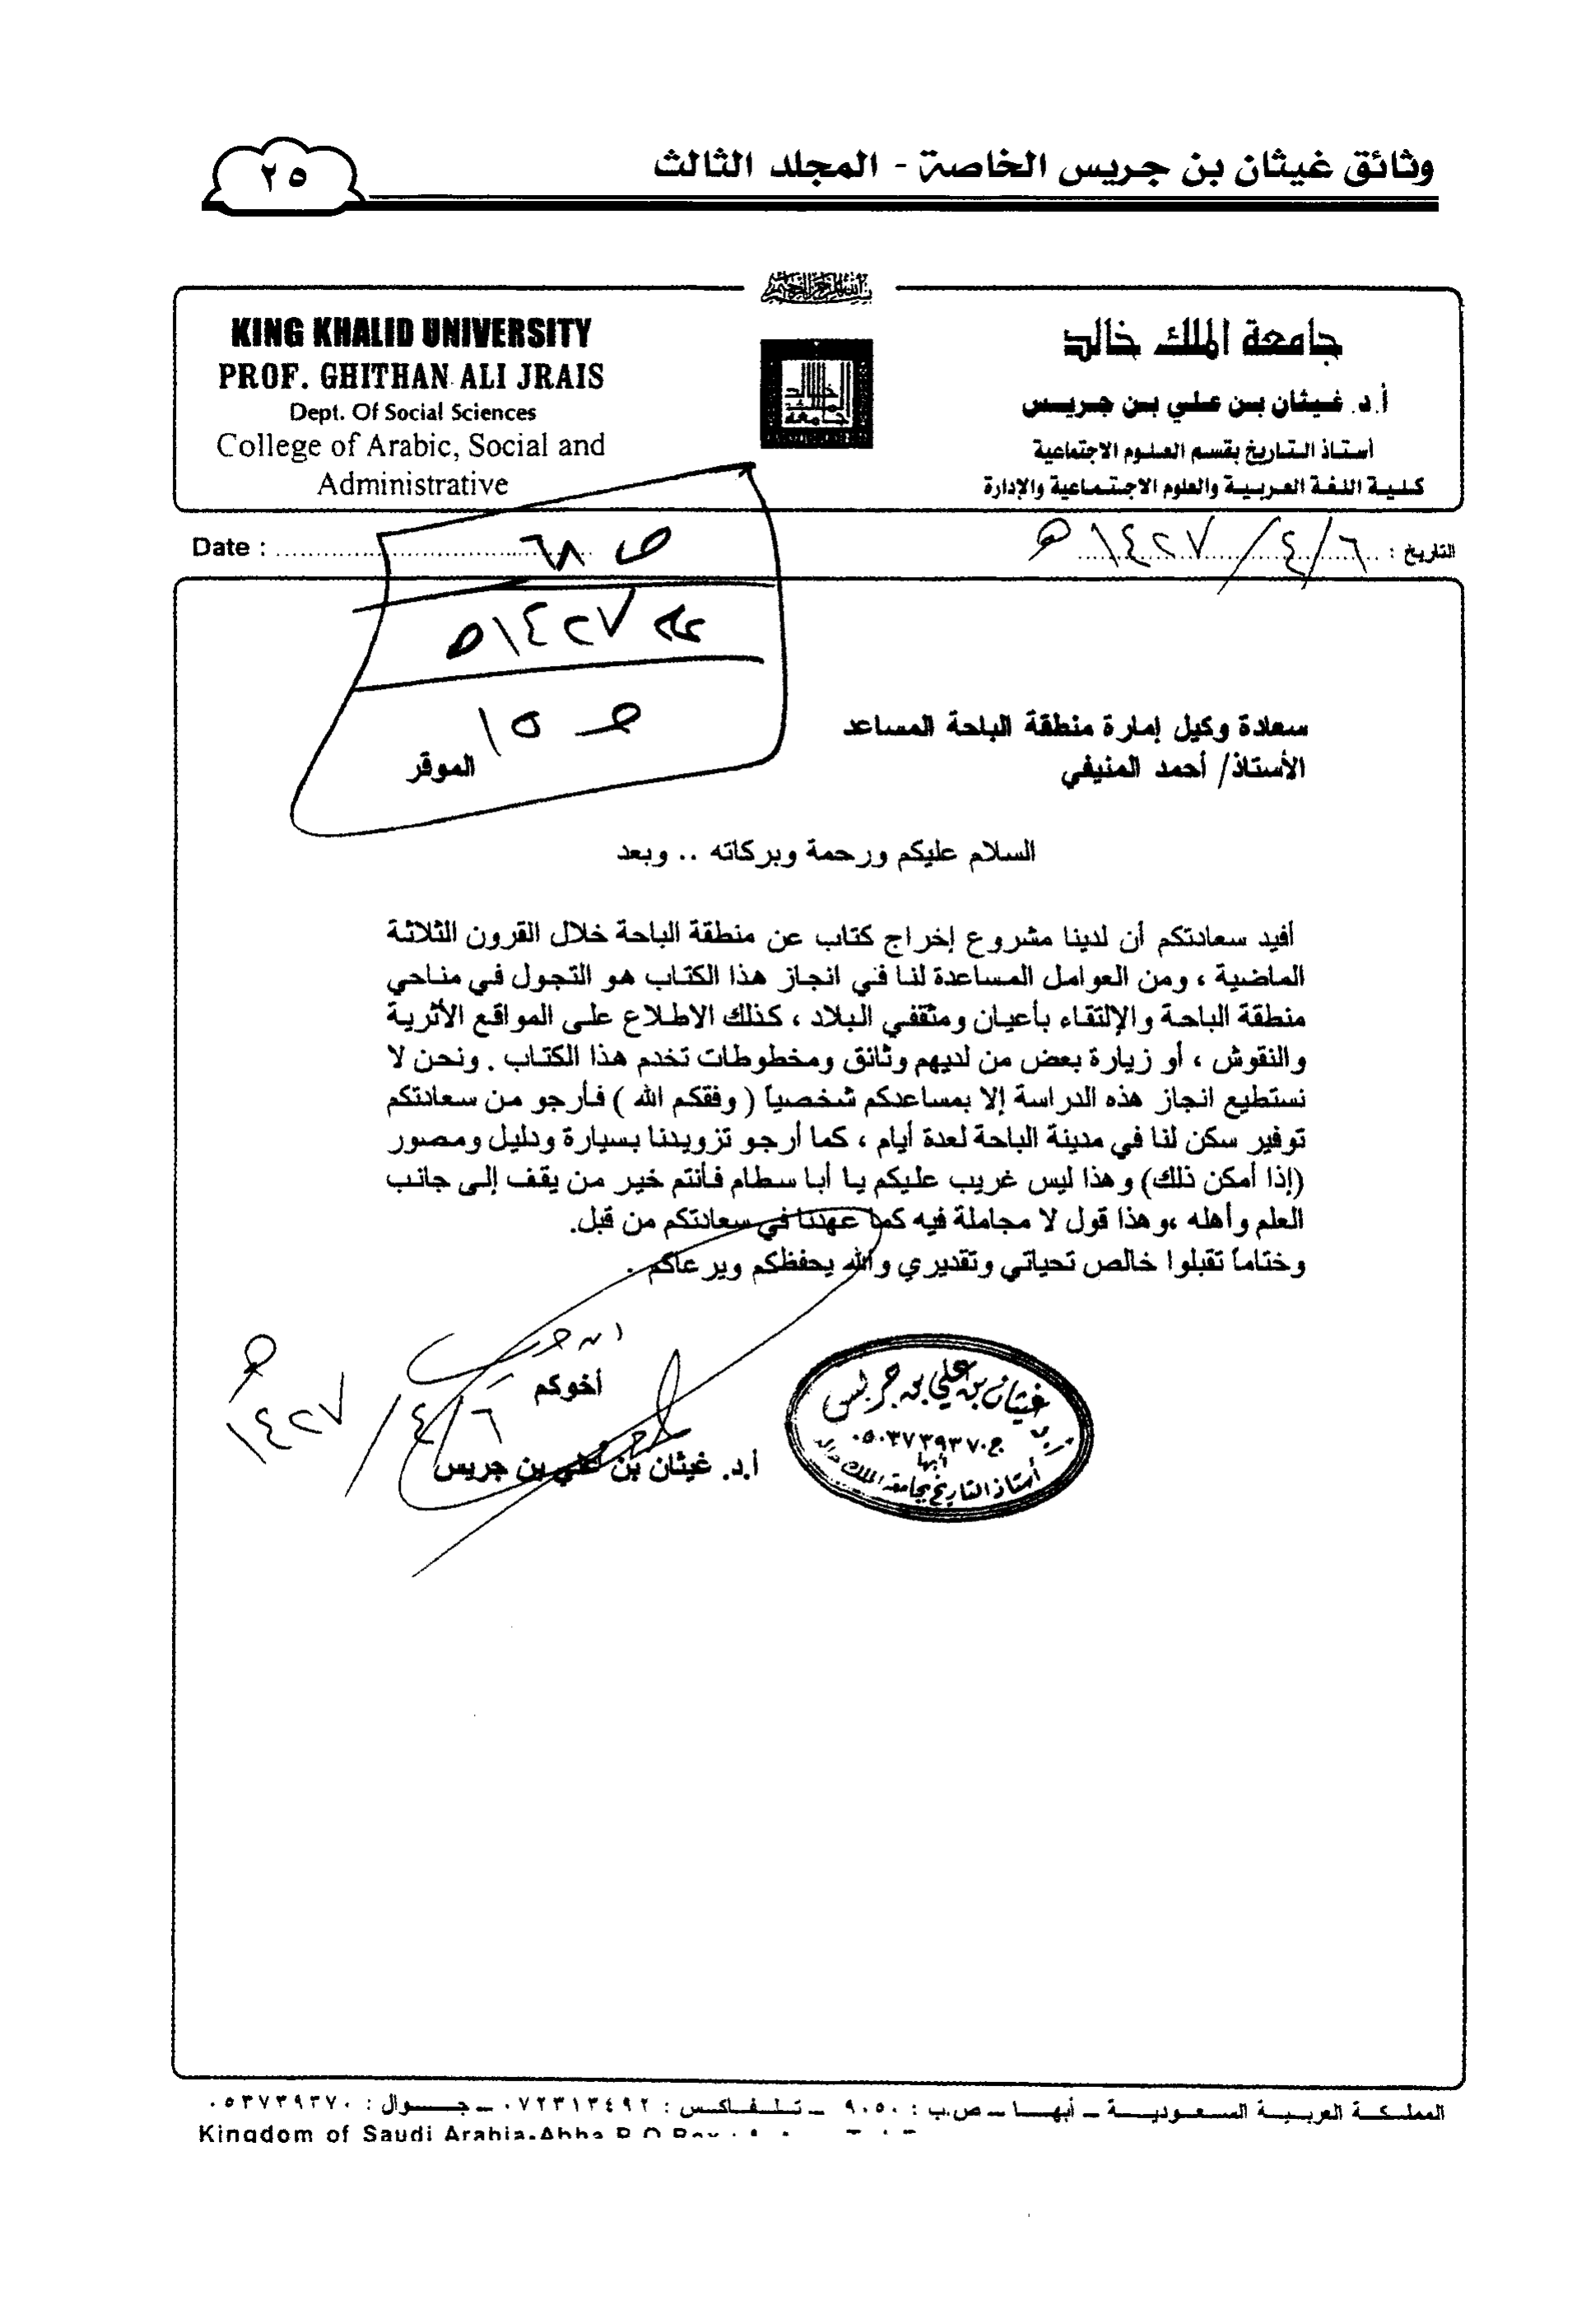 وثائق غيثان بن جريس الخاصة - المجلد الثالث
٢٥
بسم الله الرحمن الرحيم
جامعة الملك خالد
أ.د. غيثان بن علي بن جريس
أستاذ التاريخ بقسم العلوم الاجتماعية
كلية اللغة العربية والعلوم الاجتماعية والإدارة
KING KHALID UNIVERSITY
PROF. GHITHAN ALI JRAIS
Dept. Of Social Sciences
College of Arabic, Social and
Administrative
التاريخ : ٦/٤/١٤٢٧هـ
Date :
ص ٦٨
١٤٢٧هـ
ص ١٥
سعادة وكيل إمارة منطقة الباحة المساعد
الأستاذ/ أحمد المنيفي الموقر
السلام عليكم ورحمة وبركاته .. وبعد
أفيد سعادتكم أن لدينا مشروع إخراج كتاب عن منطقة الباحة خلال القرون الثلاثة
الماضية ، ومن العوامل المساعدة لنا في انجاز هذا الكتاب هو التجول في مناحي
منطقة الباحة والإلتقاء بأعيان ومثقفي البلاد ، كذلك الاطلاع على المواقع الأثرية
والنقوش ، أو زيارة بعض من لديهم وثائق ومخطوطات تخدم هذا الكتاب . ونحن لا
نستطيع انجاز هذه الدراسة إلا بمساعدكم شخصياً ( وفقكم الله ) فأرجو من سعادتكم
توفير سكن لنا في مدينة الباحة لعدة أيام ، كما أرجو تزويدنا بسيارة ودليل ومصور
(إذا أمكن ذلك) وهذا ليس غريب عليكم يا أبا سطام فأنتم خير من يقف إلى جانب
العلم وأهله ،وهذا قول لا مجاملة فيه كما عهدنا في سعادتكم من قبل.
وختاماً تقبلوا خالص تحياتي وتقديري والله يحفظكم ويرعاكم .
أخوكم
٦/٤/١٤٢٧هـ
أ.د. غيثان بن علي بن جريس
غيثان بن علي بن جريس
ج.٠٥٠٣٧٣٩٣٧
أبها
أستاذ التاريخ بجامعة الملك خالد
المملكة العربية السعودية – أبها – ص.ب : ٩٠٥٠ – تلفاكس : ٠٧٢٣١٣٤٩٢ – جوال : ٠٥٣٧٣٩٣٧٠
Kingdom of Saudi Arabia-Abha P.O.Box :